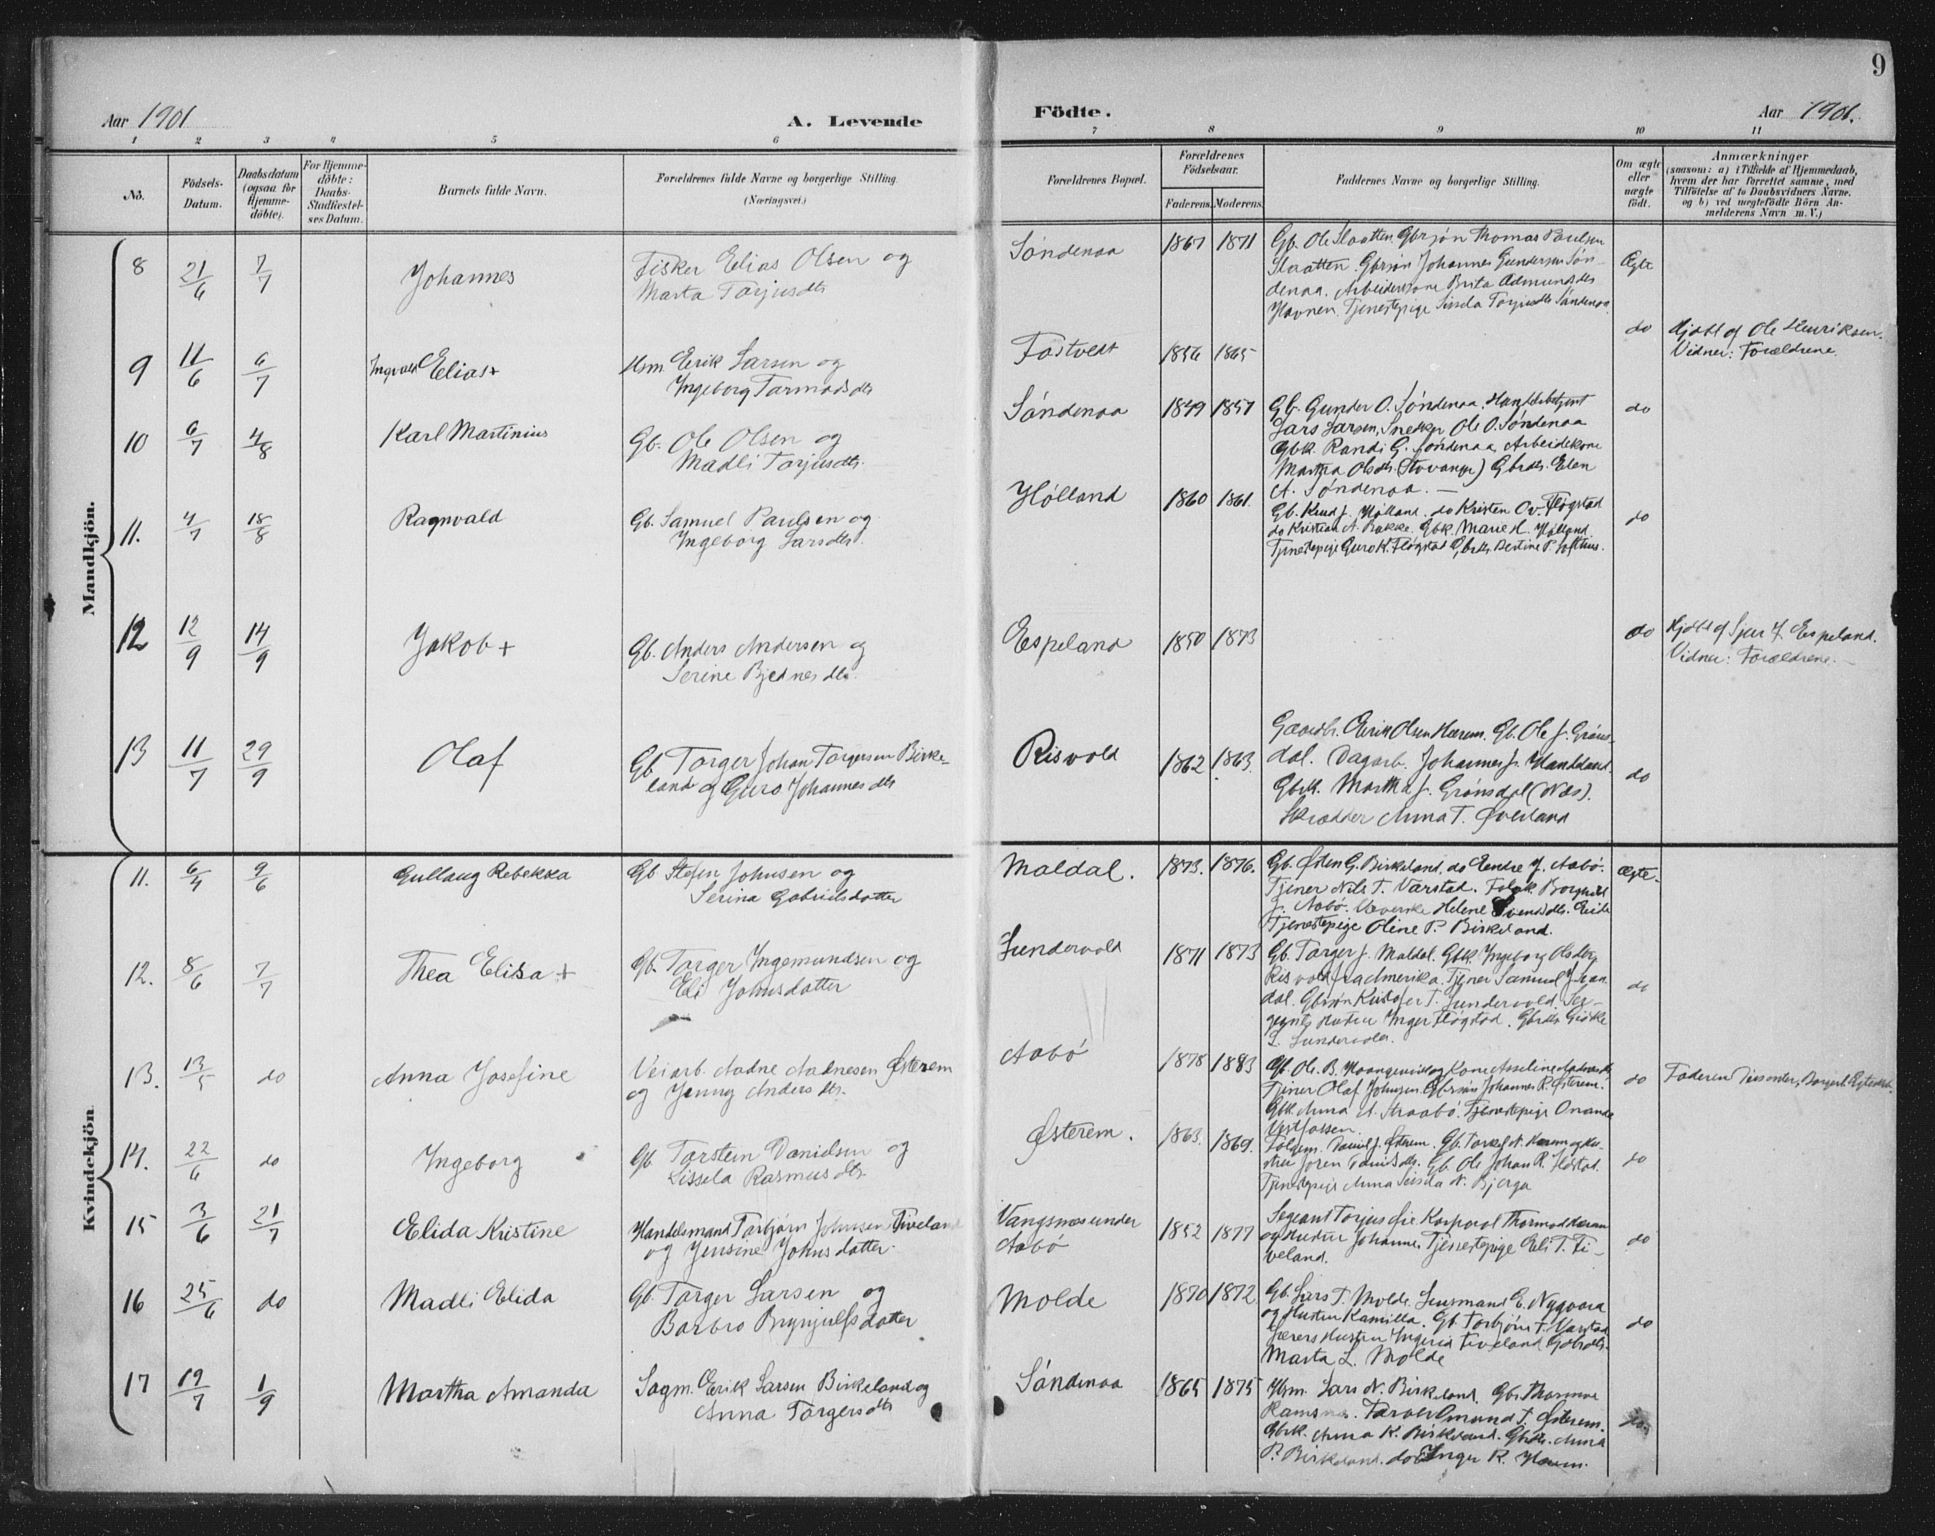 9
Aar 1901
A. Levende
Födte.
Aar 1901.
1 2 3 4 5 6 7 8 9 10 11
No.
Födsels-
Datum.
Daabsdatum
(ogsaa for
Hjemme-
döbte).
For Hjemme-
döbte:
Daabs-
Stadfæstel-
ses Datum.
Barnets fulde Navn.
Forældrenes fulde Navne og borgerlige Stilling.
(Næringsvei.)
Forældrenes Bopæl.
Forældrenes
Födselsaar.
Faderens. Moderens.
Faddernes Navne og borgerlige Stilling.
Om ægte
eller
uægte
födt.
Anmærkninger
(saasom: a) i Tilfælde af Hjemmedaab,
hvem der har forrettet samme, med
Tilföielse af to Daabsvidners Navne.
og b) ved uægtefödte Börn An-
melderens Navn m. V.)
Mandkjön.
8 21/6 7/7 Johannes
Fisker Elias Olsen og
Marta Torjusdtr
Söndenaa 1867 1871
Gb. Ole Slaatten. Gbrsön Thomas Paulsen
Slaatten. Gbrsön Johannes Gundersen Sön-
denaa. Arbeiderskone Brita Admundsdtr
Havnen. Tjenestepige Sissela Torjusdtr Söndenaa.
Ægte
9 11/6 6/7 Ingvald Elias +
Hsm. Eerik Larsen og
Ingeborg Tarmodsdtr
Fostvedt 1856 1865
do
Hjdöbt af Ole Henriksen.
Vidner: Forældrene.
10 6/7 4/8 Karl Martinius
Gb. Ole Olsen og
Madli Torjusdtr.
Söndenaa 1849 1857
Gb. Gunder O. Söndenaa. Handelsbetjent
Lars Larsen, Snedker Ole O. Söndenaa
Gbk. Randi G. Söndenaa, Arbeidskone
Martha Olsdtr. (Stavanger) Gbrdtr. Elen
A. Söndenaa.
do
11. 4/7 18/8 Ragnvald
Gb. Samuel Paulsen og
Ingeborg Larsdtr.
Hölland 1860 1861.
Gb. Knud J. Hölland. do Kristen Ov. Flögstad
do Kristian A. Bakke. Gbk. Marie H. Hölland.
Tjenestepige Guro K. Flögstad Gbrdtr. Bertine P. Lofthus.
do
12 12/9 14/9 Jakob +
Gb. Anders Andersen og
Serine Bjednesdtr.
Eespeland 1850 1873
do
Hjdöbt af Sjur J. Eespeland.
Vidner: Forældrene.
13 11/7 29/9 Olaf
Gb Torger Johan Torgersen Birke-
land og Guro Johannesdtr
Risvold 1862 1863.
Gaardbr. Eerik Olsen Hærem. Gb. Ole J. Gröns-
dal. Dagarb. Johannes J. Handeland.
Gbrk. Martha J. Grönsdal (Næs).
Skrædder Anna T. Øverland
do
Kvindekjön.
11. 6/4 9/6 Gullaug Rebekka
Gb Stefen Johnsen og
Serina Gabrielsdatter
Maldal. 1873. 1876.
Gb. Østen G. Birkeland. do Eendre J. Aabö.
Tjener Nils T. Varstad. Folgk. Borgnild
J. Aabö. Væverske Helene Svendsdtr. Eeide
Tjenestepige Oline P. Birkeland.
Ægte.
12. 8/6 7/7 Thea Elisa +
Gb. Torger Ingemundsen og
Eli Johnsdatter
Sundervold 1871 1873
Gb. Torger J. Maldal. Gbk. Ingeborg Olsdtr
Risvold fra Amerika. Tjener Samuel
dal. Gbrsön Kristofer T. Sundervold. Ser-
geants Hustru Inger Flögstad. Gbrdtr Giske
L. Sundervold.
do
13. 13/5 do Anna Josefine
Veiarb. Aadne Aadnesen Østerem
og Jenny Andersdtr.
Aabö 1878 1883
Gb. Ole. B. Kone Asseline
Tjener Olaf Johnsen. Gbrsön Johannes R. Østerem.
Gbk. Anna A. Straabö. Tjenestepige Onanda
Vestfossen.
do
Faderen Dissenter, Borgerl. Egteskab.
14. 22/6 do Ingeborg
Gb. Torstein Danielsen og
Sissela Rasmusdtr
Østerem. 1863. 1869.
Folgem. Daniel J. Østerem. Gb. Torkel N. Hærem og Hu-
stru Joren Danielsdtr. Gb. Ole Johan R. Flöstad.
Tjenestepige Anna Sissela N. Bjerga
do
15 3/6 21/7 Elida Kristine
Handelsmand Torbjörn Johnsen Tiveland
og Jensine Johnsdatter.
Vangsnes under
Aabö
1852 1877
Segeant Torjus Korporal Thormod Hærem
og Hustru Johanne, Tjenestepige Eli T. Ti-
veland.
do
16 25/6 do Madli Elida
Gb. Torger Larsen og
Barbro Brynjulfsdatter
Molde 1870 1872.
Gb. Lars T. Molde. Snusmand E. Nygvara
og Hustru Kamilla. Gb. Torbjörn T. Varstad
Lærers Hustru Ingeria Tiveland Gbrdtr.
Marta L. Molde
do
17 19/7 1/9 Martha Amanda
Sagm. Eerik Larsen Birkeland og
Anna Torgersdtr
Söndenaa 1865 1875
Hsm. Lars N. Birkeland. Gb. Thormoe
Ramsnes. Farver Omund T. Østerem.
Gbrk. Anna K. Birkeland. Gbrdtr. Anna
P. Birkeland. do Inger R. Hærem.
do